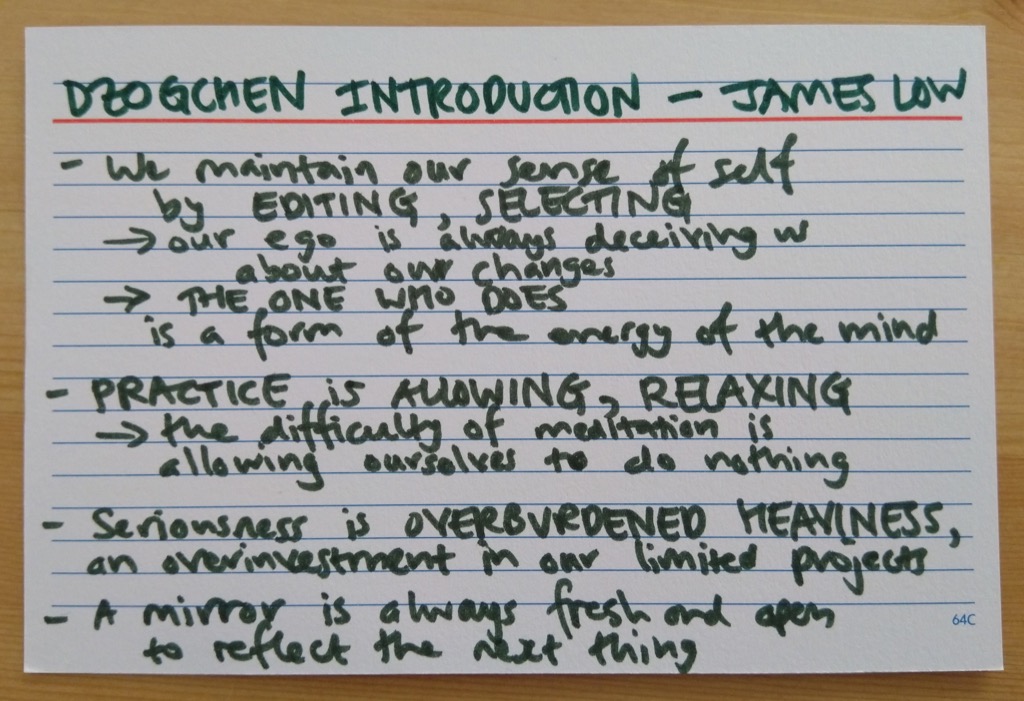 DZOGCHEN INTRODUCTION - JAMES LOW
- We maintain our sense of self
by EDITING, SELECTING
→ our ego is always deceiving us
about our changes
→ THE ONE WHO DOES
is a form of the energy of the mind
- PRACTICE is ALLOWING, RELAXING
→ the difficulty of meditation is
allowing ourselves to do nothing
- Seriousness is OVERBURDENED HEAVINESS,
an overinvestment in our limited projects
- A mirror is always fresh and open
to reflect the next thing
64C